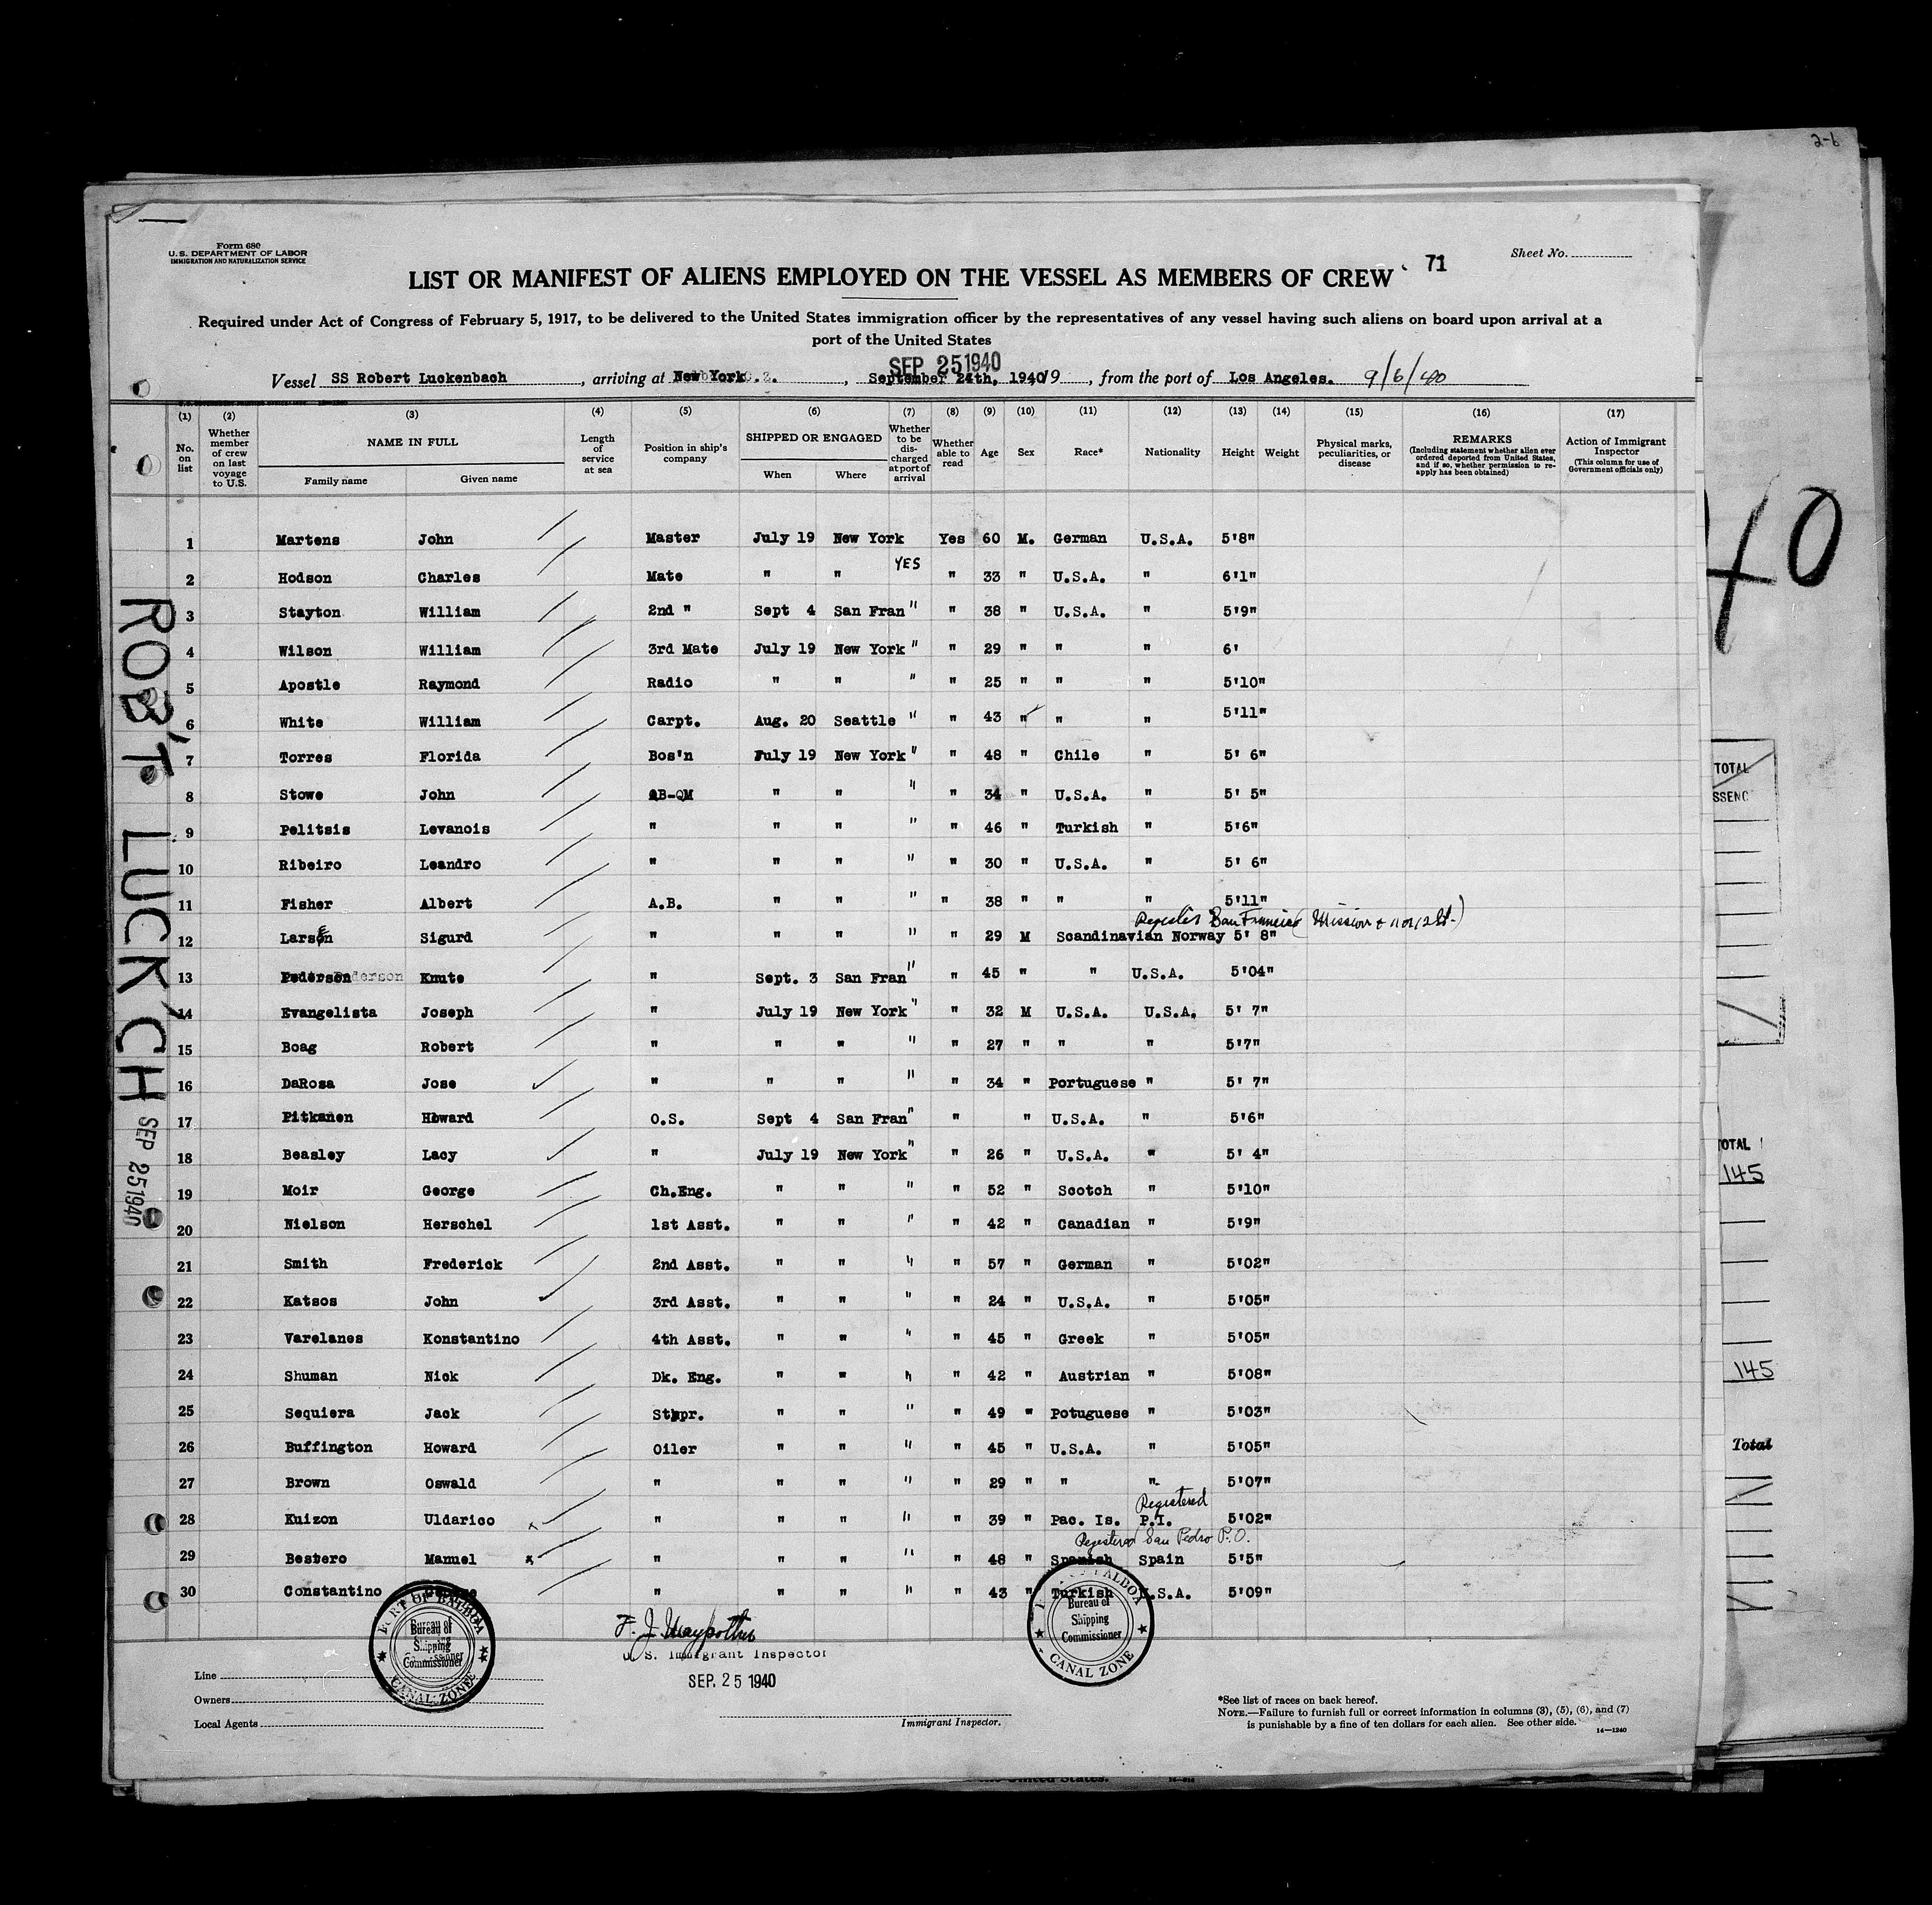 2-6
Form 680
U.S. DEPARTMENT OF LABOR
IMMIGRATION AND NATURALIZATION SERVICE
Sheet No.
LIST OR MANIFEST OF ALIENS EMPLOYED ON THE VESSEL AS MEMBERS OF CREW 71
Required under Act of Congress of February 5, 1917, to be delivered to the United States immigration officer by the representatives of any vessel having such aliens on board upon arrival at a
port of the United States
SEP 25 1940
Vessel SS Robert Luckenbach, arriving at New York, September 24th, 1940 19, from the port of Los Angeles. 9/6/40
(1) (2) (3) (4) (5) (6) (7) (8) (9) (10) (11) (12) (13) (14) (15) (16) (17)
No. on list
Whether member of crew on last voyage to U.S.
NAME IN FULL
Family name Given name
Length of service at sea
Position in ship's company
SHIPPED OR ENGAGED
When Where
Whether to be discharged at port of arrival
Whether able to read
Age
Sex
Race*
Nationality
Height
Weight
Physical marks, peculiarities, or disease
REMARKS
(Including statement whether alien ever ordered deported from United States, and if so, whether permission to reapply has been obtained)
Action of Immigrant Inspector
(This column for use of Government officials only)
1 Martens John Master July 19 New York Yes 60 M. German U.S.A. 5'8"
2 Hodson Charles Mate " " YES " 33 " U.S.A. " 6'1"
3 Stayton William 2nd " Sept 4 San Fran " " 38 " U.S.A. " 5'9"
4 Wilson William 3rd Mate July 19 New York " " 29 " " " 6'
5 Apostle Raymond Radio " " " " 25 " " " 5'10"
6 White William Carpt. Aug. 20 Seattle " " 43 " " " 5'11"
7 Torres Florida Bos'n July 19 New York " " 48 " Chile " 5' 6"
8 Stowe John QB-QM " " " " 34 " U.S.A. " 5' 5"
9 Pelitsis Levanois " " " " " 46 " Turkish " 5'6"
10 Ribeiro Leandro " " " " " 30 " U.S.A. " 5' 6"
11 Fisher Albert A.B. " " " " 38 " " " 5'11"
San Francisco (Mission +
12 Larsen Sigurd " " " " " 29 M Scandinavian Norway 5' 8"
13 Pederson Knute " Sept. 3 San Fran " " 45 " " U.S.A. 5'04"
14 Evangelista Joseph " July 19 New York " " 32 M U.S.A. U.S.A. 5' 7"
15 Boag Robert " " " " " 27 " " " 5'7"
16 DaRosa Jose " " " " " 34 " Portuguese " 5' 7"
17 Pitkanen Howard O.S. Sept 4 San Fran " " " U.S.A. " 5'6"
18 Beasley Lacy " July 19 New York " " 26 " U.S.A. " 5' 4"
19 Moir George Ch.Eng. " " " " 52 " Scotch " 5'10"
20 Nielson Herschel 1st Asst. " " " " 42 " Canadian " 5'9"
21 Smith Frederick 2nd Asst. " " " " 57 " German " 5'02"
22 Katsos John 3rd Asst. " " " " 24 " U.S.A. " 5'05"
23 Varelanes Konstantino 4th Asst. " " " " 45 " Greek " 5'05"
24 Shuman Nick Dk. Eng. " " " " 42 " Austrian " 5'08"
25 Sequiera Jack Stkpr. " " " " 49 " Potuguese " 5'03"
26 Buffington Howard Oiler " " " " 45 " U.S.A. " 5'05"
27 Brown Oswald " " " " " 29 " " " 5'07"
Registered
28 Kuizon Uldarico x " " " " " 39 " Pac. Is. P.I. 5'02"
Registered San Pedro P.O.
29 Bestero Manuel x " " " " " 48 " Spanish Spain 5'5"
30 Constantino George " " " " " 43 " Turkish U.S.A. 5'09"
ROB'T LUCK'CH
SEP 25 1940
PORT OF BALBOA
Bureau of
Shipping
Commissioner
CANAL ZONE
BALBOA
Bureau of
Shipping
Commissioner
CANAL ZONE
F. J.
U.S. Immigrant Inspector
SEP. 25 1940
Line
Owners
Local Agents
Immigrant Inspector.
*See list of races on back hereof.
NOTE.—Failure to furnish full or correct information in columns (3), (5), (6), and (7)
is punishable by a fine of ten dollars for each alien. See other side.
14—1240
40
TOTAL
SSENG
TOTAL
145
145
Total
the United States.